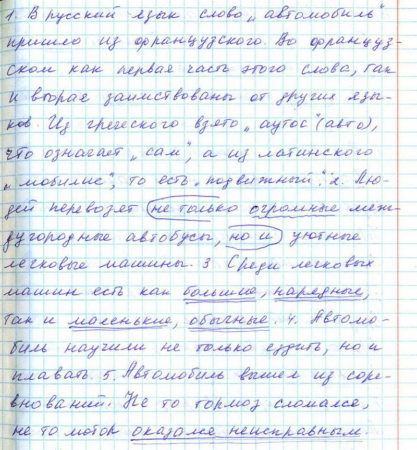 1. В русский язык слово „автомобиль"
пришло из французского. Во француз-
ском как первая часть этого слова, так
и вторая заимствованы от других язы-
ков. Из греческого взято „аутос" (авто),
что означает „сам", а из латинского
„мобилис", то есть „подвижный". 2. Лю-
дей перевозят не только огромные меж-
дугородные автобусы, но и уютные
легковые машины. 3. Среди легковых
машин есть как большие, нарядные,
так и маленькие, обычные. 4. Автомо-
биль научили не только ездить, но и
плавать. 5. Автомобиль вышел из соре-
внований. Не то тормоз сломался,
не то мотор оказался неисправным.